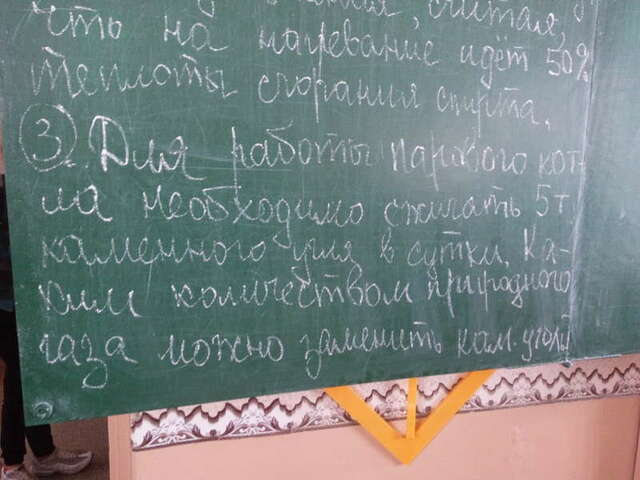 считая,
что на нагревание идёт 50%
теплоты сгорания спирта.
3. Для работы парового кот-
ла необходимо сжигать 5т
каменного угля в сутки. Ка-
ким количеством природного
газа можно заменить кам. уголь